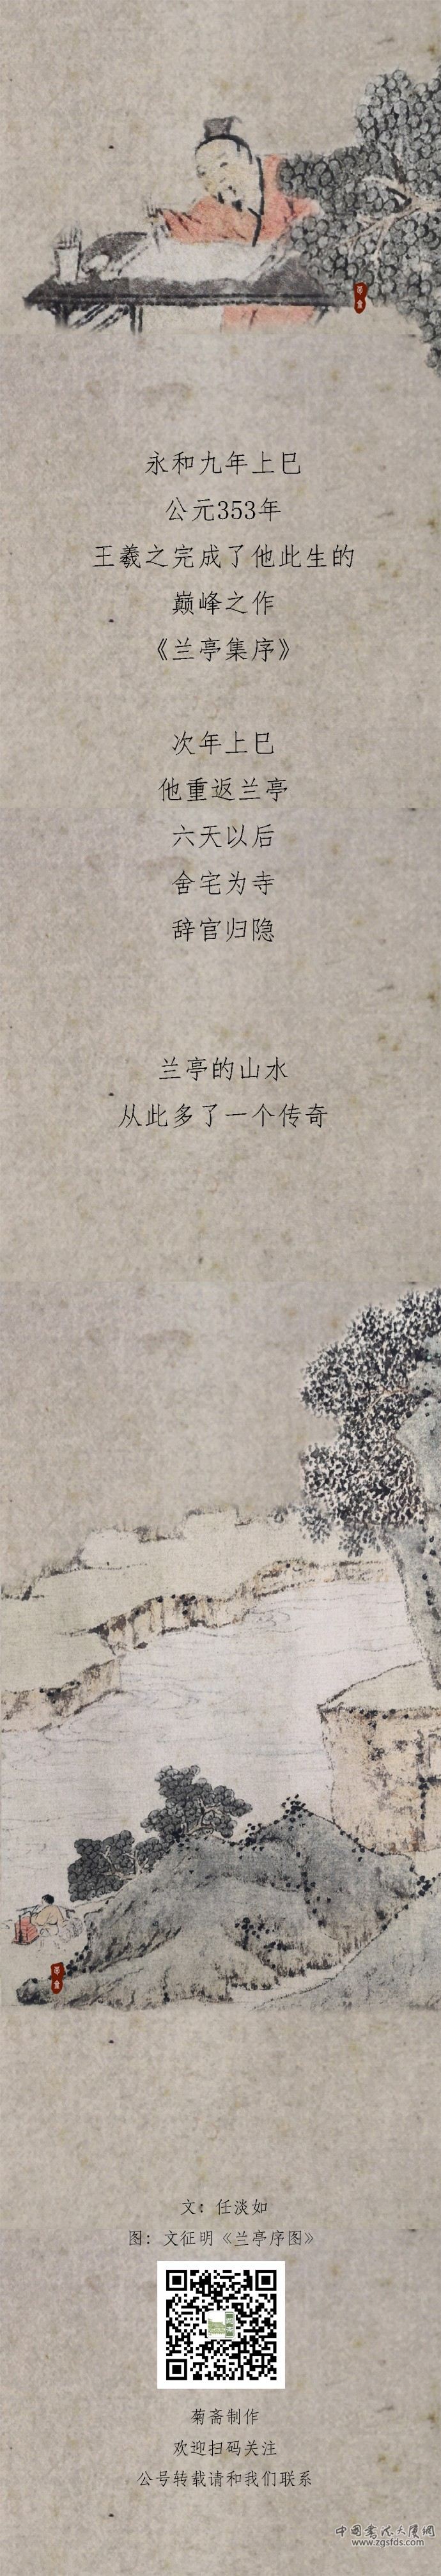 菊斋
永和九年上巳
公元353年
王羲之完成了他此生的
巅峰之作
《兰亭集序》
次年上巳
他重返兰亭
六天以后
舍宅为寺
辞官归隐
兰亭的山水
从此多了一个传奇
菊斋
文：任淡如
图：文征明《兰亭序图》
菊斋制作
欢迎扫码关注
公号转载请和我们联系
中国书法大厦网
www.zgsfds.com